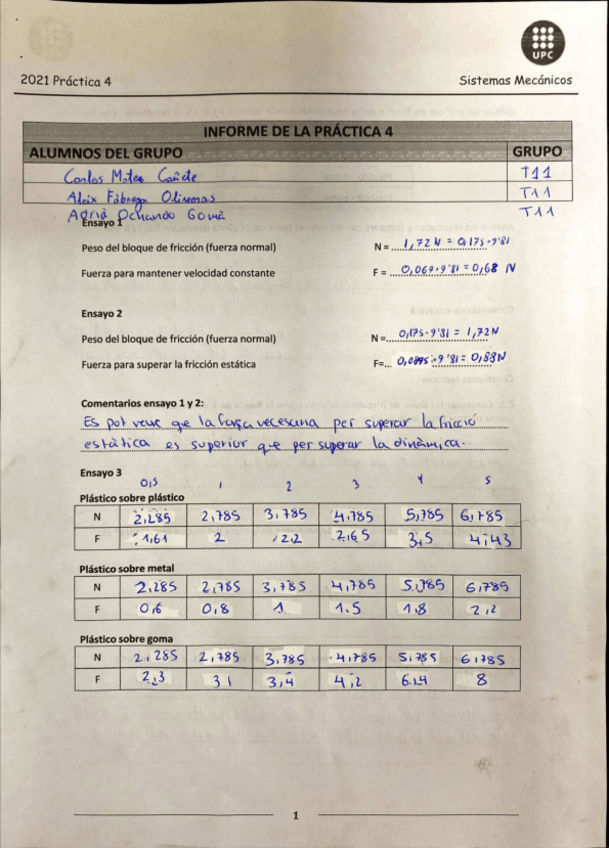 UPC
2021 Práctica 4 Sistemas Mecánicos
INFORME DE LA PRÁCTICA 4
ALUMNOS DEL GRUPO GRUPO
Carlos Mateo Cañete T11
Aleix Fàbrega Oliveras T11
Adrià Ochando Gomà T11
Ensayo 1
Peso del bloque de fricción (fuerza normal) N = 1,72 N = 0,175·9'81
Fuerza para mantener velocidad constante F = 0,069·9'81 = 0,68 N
Ensayo 2
Peso del bloque de fricción (fuerza normal) N = 0,175·9'81 = 1,72N
Fuerza para superar la fricción estática F=... 0,0895·9'81 = 0,88N
Comentarios ensayo 1 y 2:
Es pot veure que la força necesaria per superar la fricció
estàtica es superior que per superar la dinàmica.
Ensayo 3
0,5 1 2 3 4 5
Plástico sobre plástico
N 2,285 2,785 3,785 4,785 5,785 6,785
F 1,61 2 2,2 2,65 3,5 4,43
Plástico sobre metal
N 2,285 2,785 3,785 4,785 5,785 6,785
F 0,6 0,8 1 1,5 1,8 2,2
Plástico sobre goma
N 2,285 2,785 3,785 4,785 5,785 6,785
F 2,3 3,1 3,4 4,2 6,4 8
1